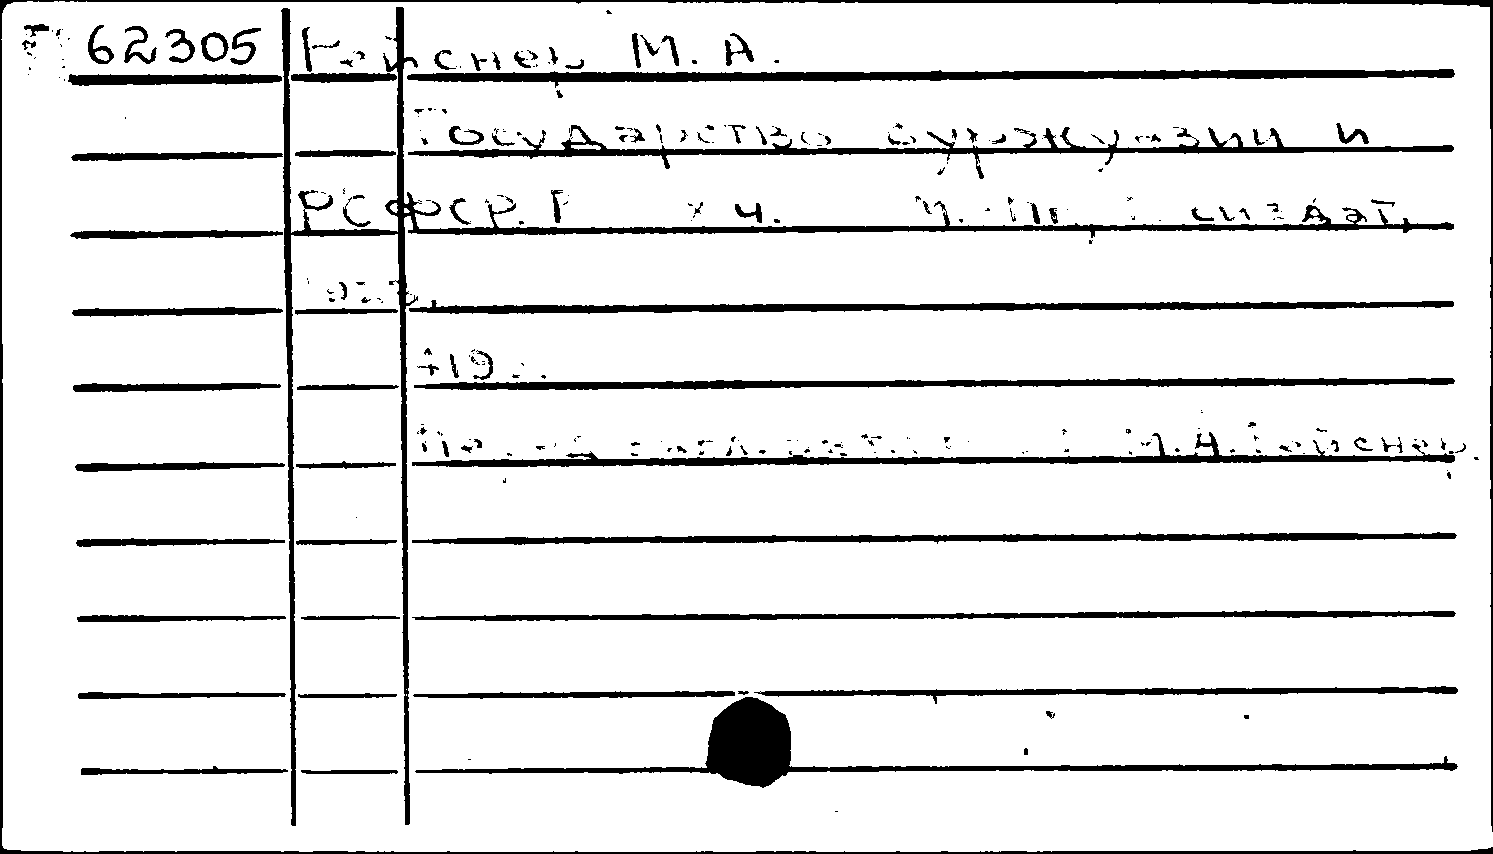 62305 Рейснер М. А.
Государство буржуазии и
РСФСР. х ч. М.-Пг., Госиздат,
1923.
419 с.
Перед загл. авт.: М.А.Рейснер.